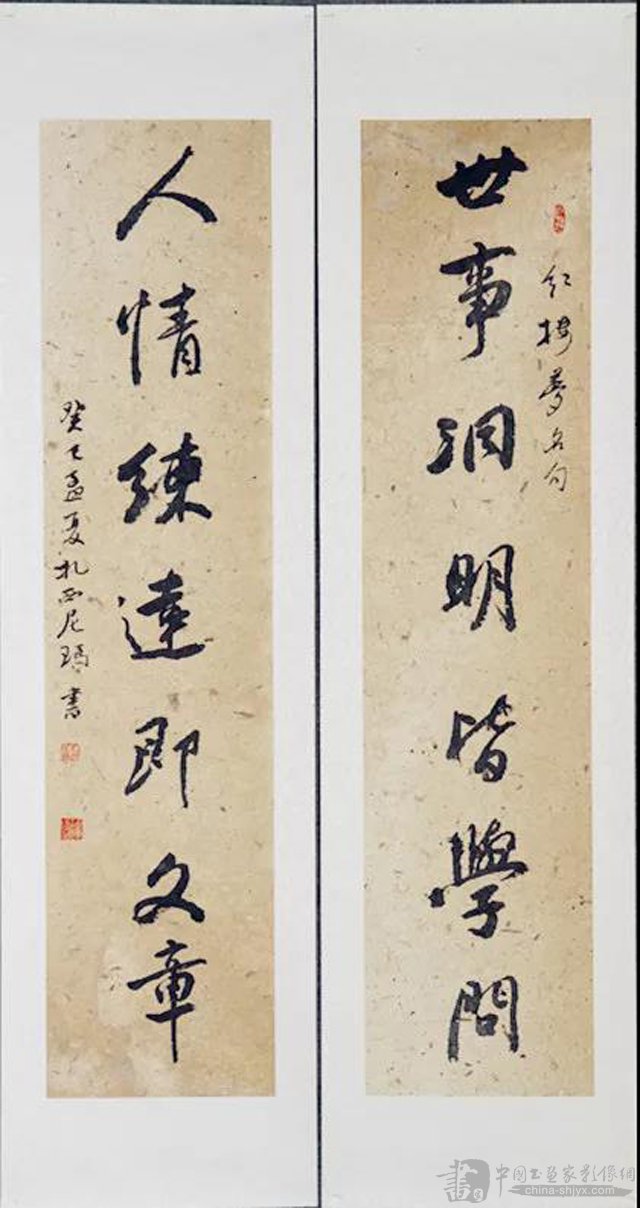 红楼梦名句
世事洞明皆學問
人情練達即文章
癸巳孟夏扎西尼瑪書
中国书画家影像網
china-shjyx.com